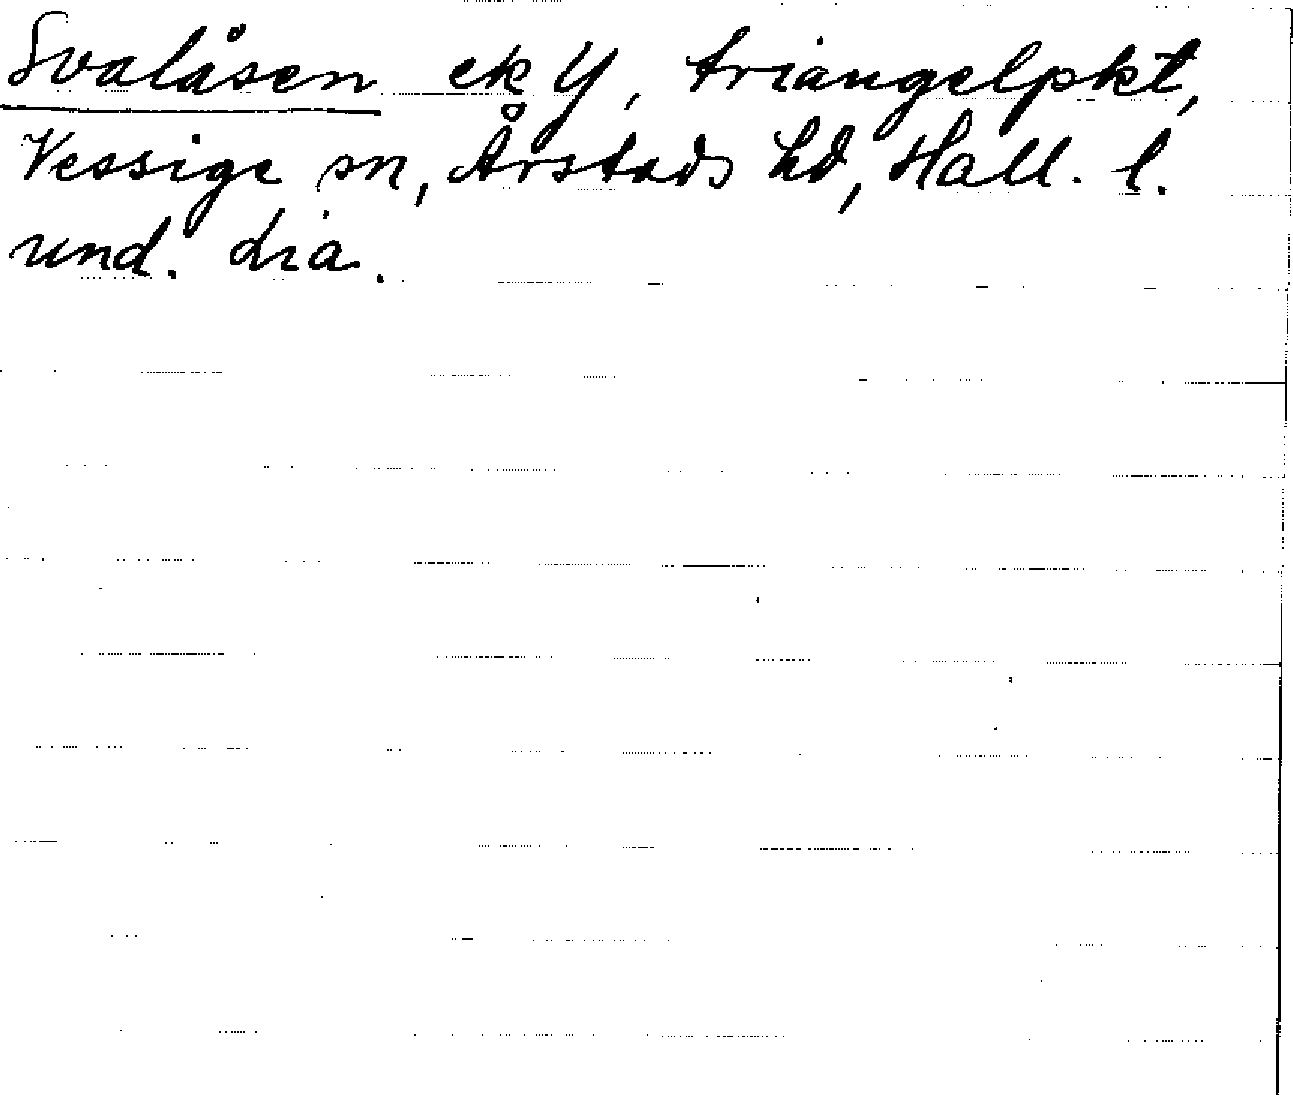 Svalåsen ek Y, triangelpkt,
Vessige sn, Årstads hd, Hall. l.
und. Lia.